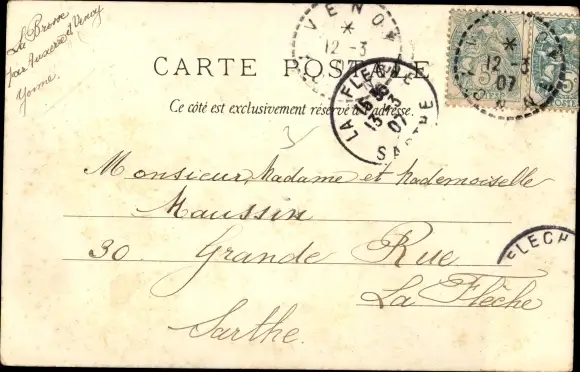 La Brosse
par Auxerre à Venoy
Yonne.
VENOY
*
12 -3
07
CARTE POSTALE
Ce côté est exclusivement réservé à l'adresse.
LA FLECHE
13 -3
07
SARTHE
*
12 -3
07
POSTES
Monsieur, Madame et Mademoiselle
Maussin
30. Grande Rue
La Flèche
Sarthe.
FLECH